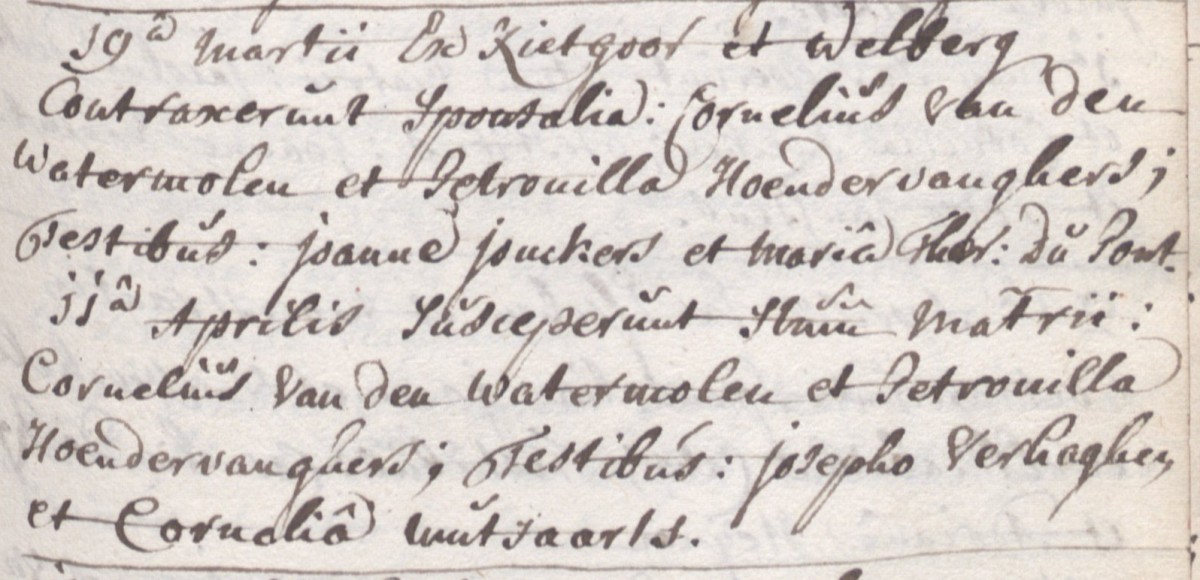 19â Martii Ex Rietgoor et Welberg
Contraxerunt Sponsalia: Cornelius Van den
Watermolen et Petronilla Hoendervanghers;
Testibus: joanne jonckers et Mariâ Ther: Du Pont.
jjâ Aprilis Susceperunt Stum Matrii:
Cornelius Van den Watermolen et Petronilla
Hoendervanghers; Testibus: josepho Verhaghen
et Corneliâ Mutsaarts.